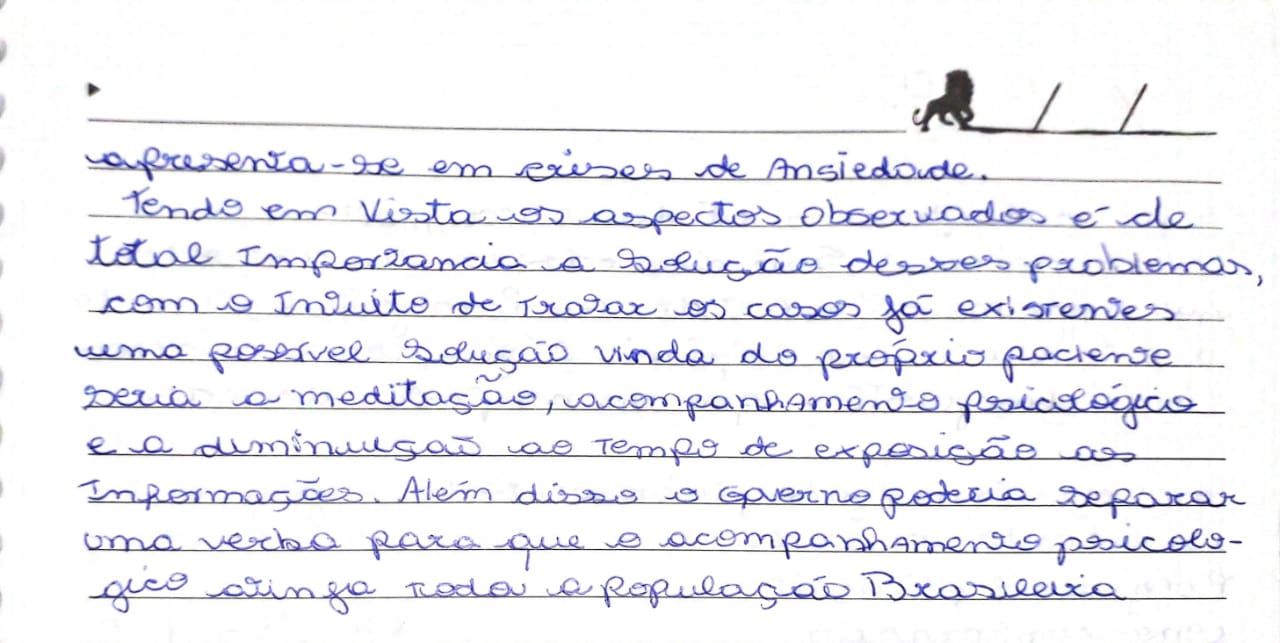 apresenta-se em crises de Ansiedade.
Tendo em Vista os aspectos Observados é de
total Importancia a Solução desses problemas,
com o Intuito de Tratar os casos já existentes
uma possível Solução vinda do próprio paciente
seria a meditação, acompanhamento psicológico
e a diminuiçaõ ao Tempo de exposição as
Informações. Além disso o Governo poderia separar
uma verba para que o acompanhamento psicolo-
gico atinga toda a população Brasileira